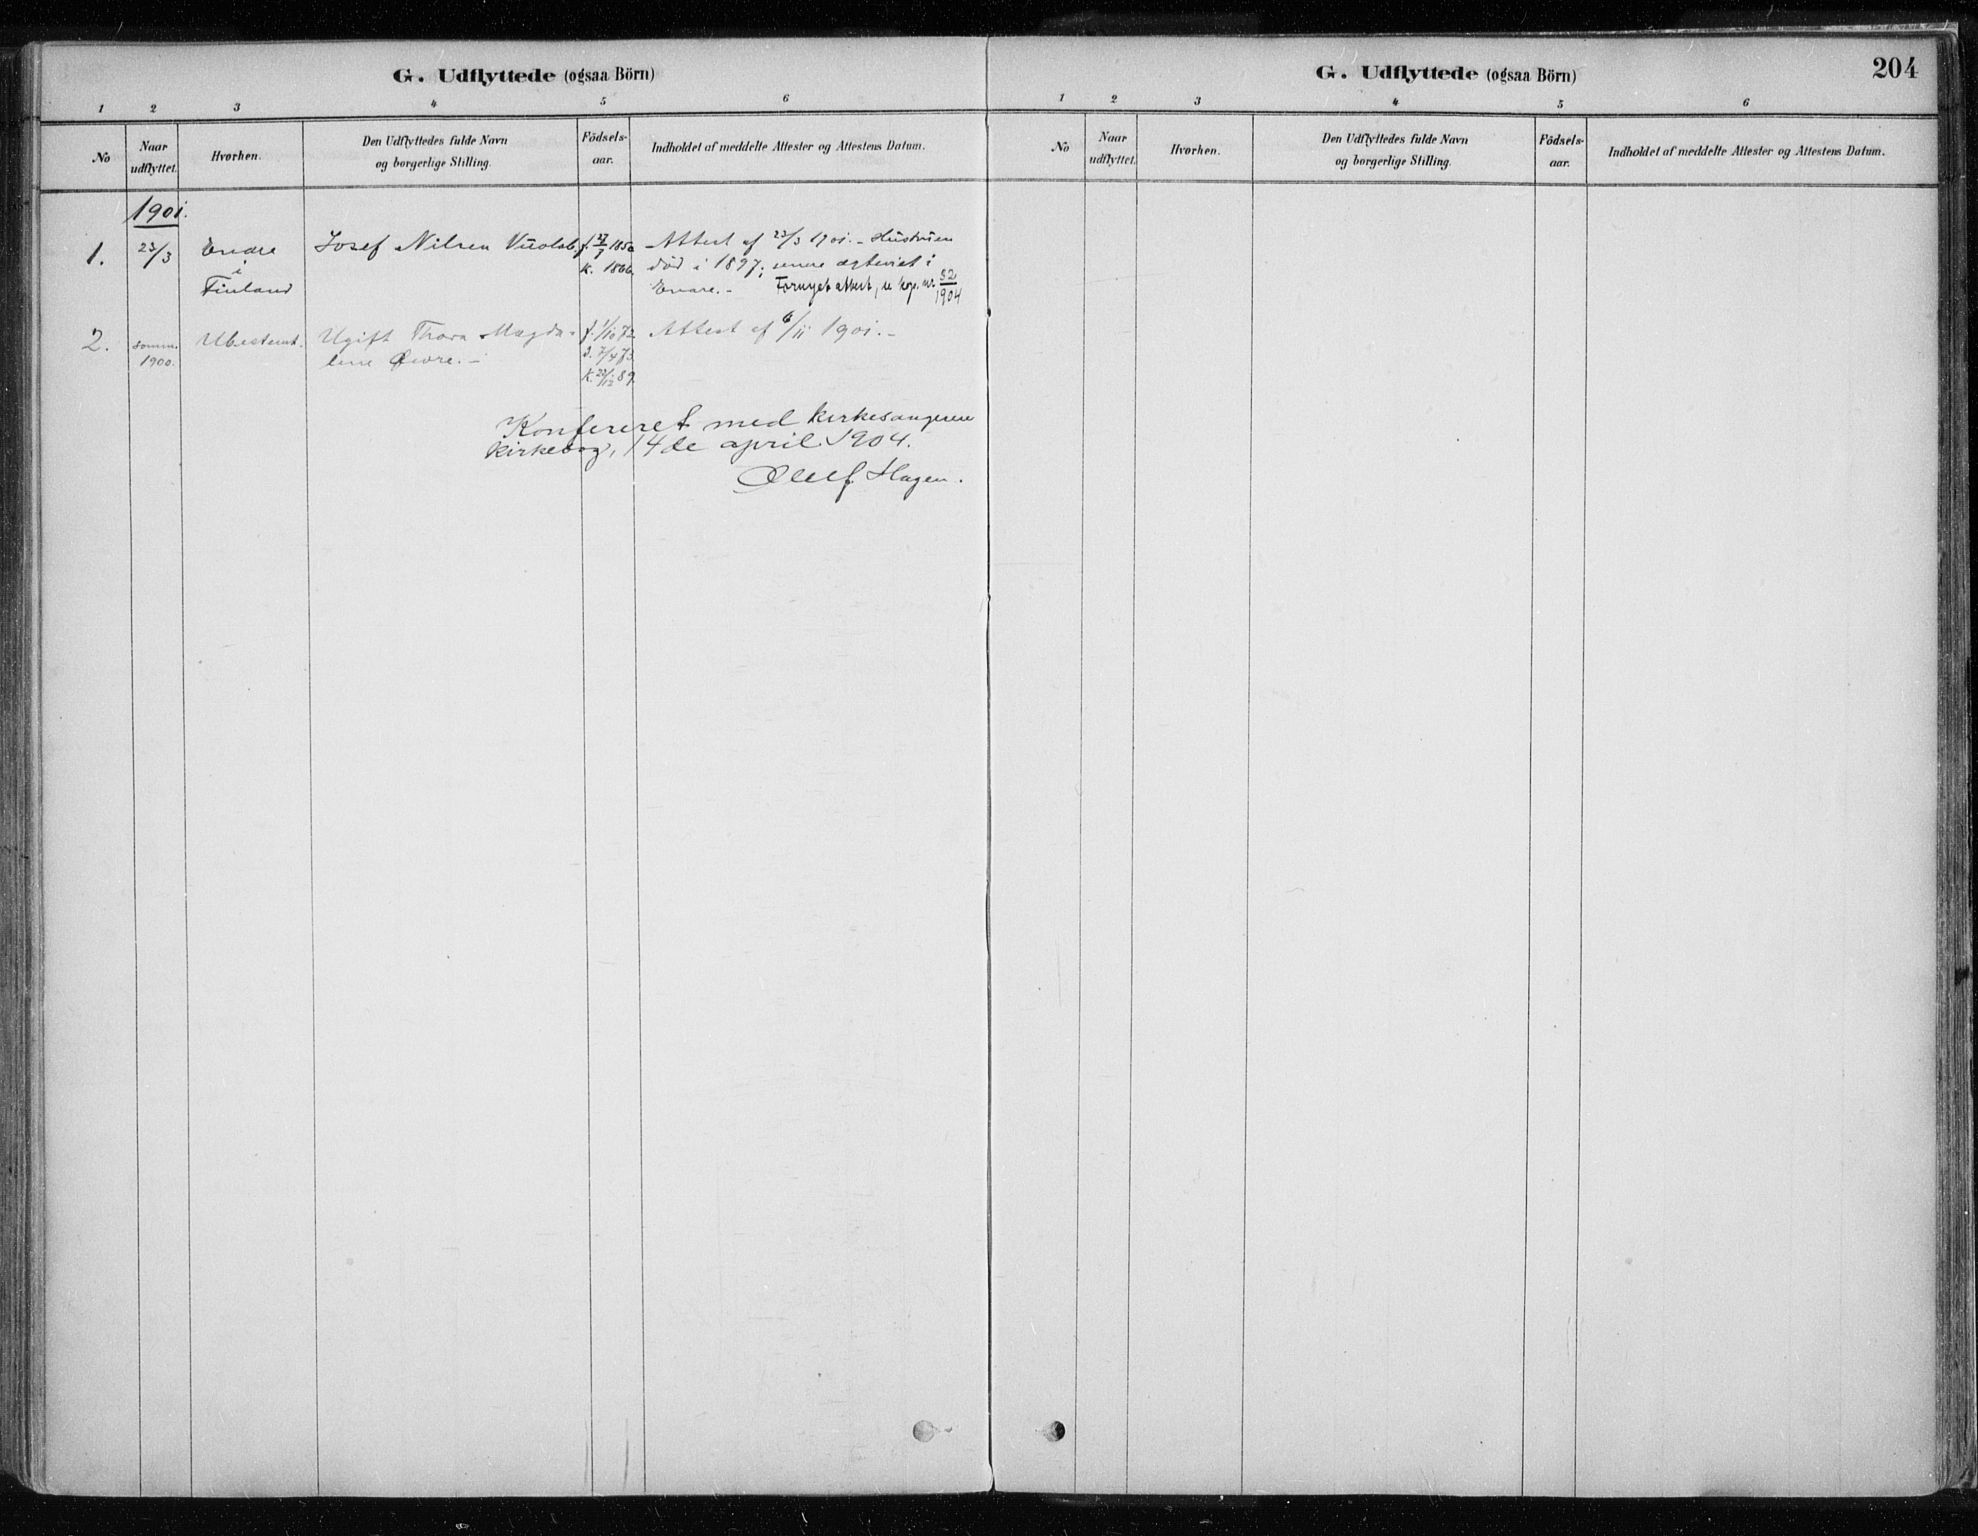 G. Udflyttede (ogsaa Börn)
1 2 3 4 5 6
No
Naar udflyttet.
Hvorhen.
Den Udflyttedes fulde Navn og borgerlige Stilling.
Födsels-aar.
Indholdet af meddelte Attester og Attestens Datum.
1901.
1. 23/3 Enare Josef Nilsen f. 27/7 1850 Attest af 23/3 1901. - Hustruen
i k. 1866. død i 1897; senere ægteviet i
Finland Enare. - Fornyet attest, se kop. nr. 52/1904
2. somm. Ubestemt. Ugift Thora Magda- f. 1/10 72. Attest af 6/11 1901. -
1900. line Øwre. - d. 7/4 73.
k. 22/12 89.
Konfereret med kirkesangerens
kirkebog, 14de april 1904.
Oluf Hagen.
G. Udflyttede (ogsaa Börn)
204
1 2 3 4 5 6
No
Naar udflyttet.
Hvorhen.
Den Udflyttedes fulde Navn og borgerlige Stilling.
Födsels-aar.
Indholdet af meddelte Attester og Attestens Datum.